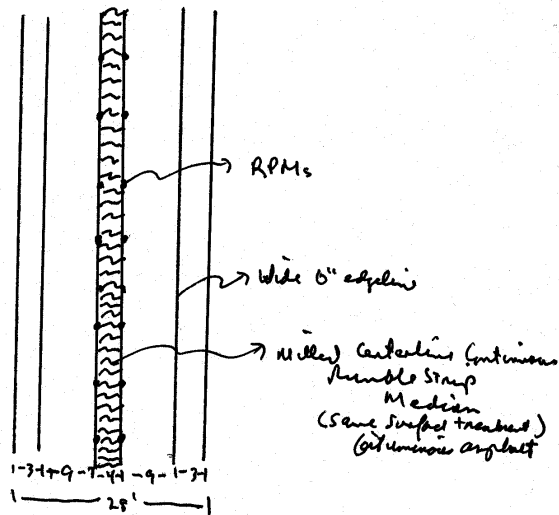 RPMs
Wide 6" edgeline
Milled Centerline Continuous
Rumble Strip
Median
(Same surface treatment)
bituminous asphalt
3 9 4 9 3
28'